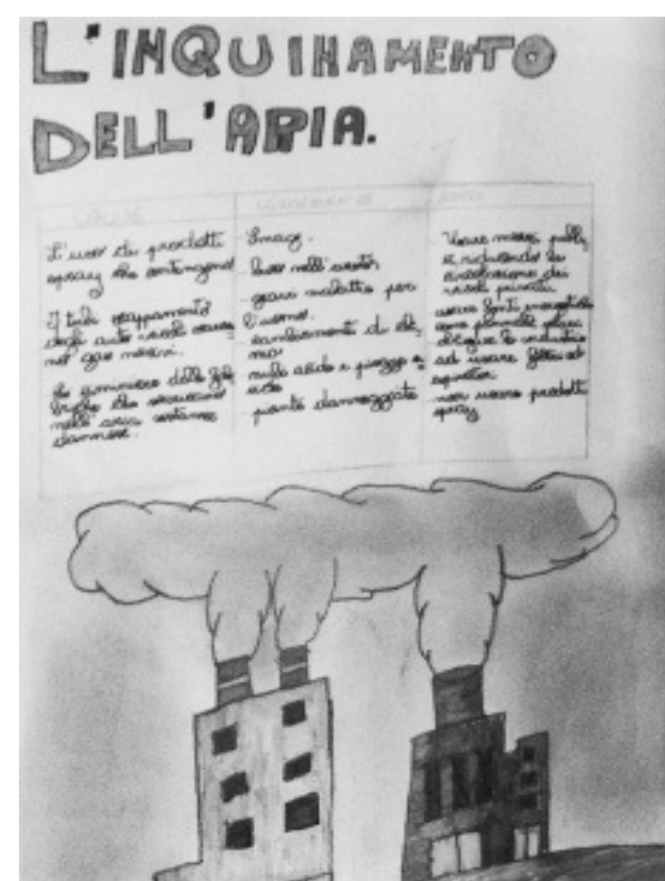 L'INQUINAMENTO
DELL'ARIA.
CAUSE
L'uso di prodotti
spray che contengono
I tubi
degli auto veicoli
gas nocivi.
Le ciminiere delle fab
briche che
nell'aria sostanze
dannose.
Smog.
buco nell'
gravi malattie per
l'uomo.
cambiamenti di cli
ma
acide e piogge a
cide
piante danneggiate
Usare mezzi pubbli
ci riducendo la
circolazione dei
veicoli privati.
usare fonti energetiche
come pannelli solari
le industrie
ad usare filtri ed
non usare prodotti
spray